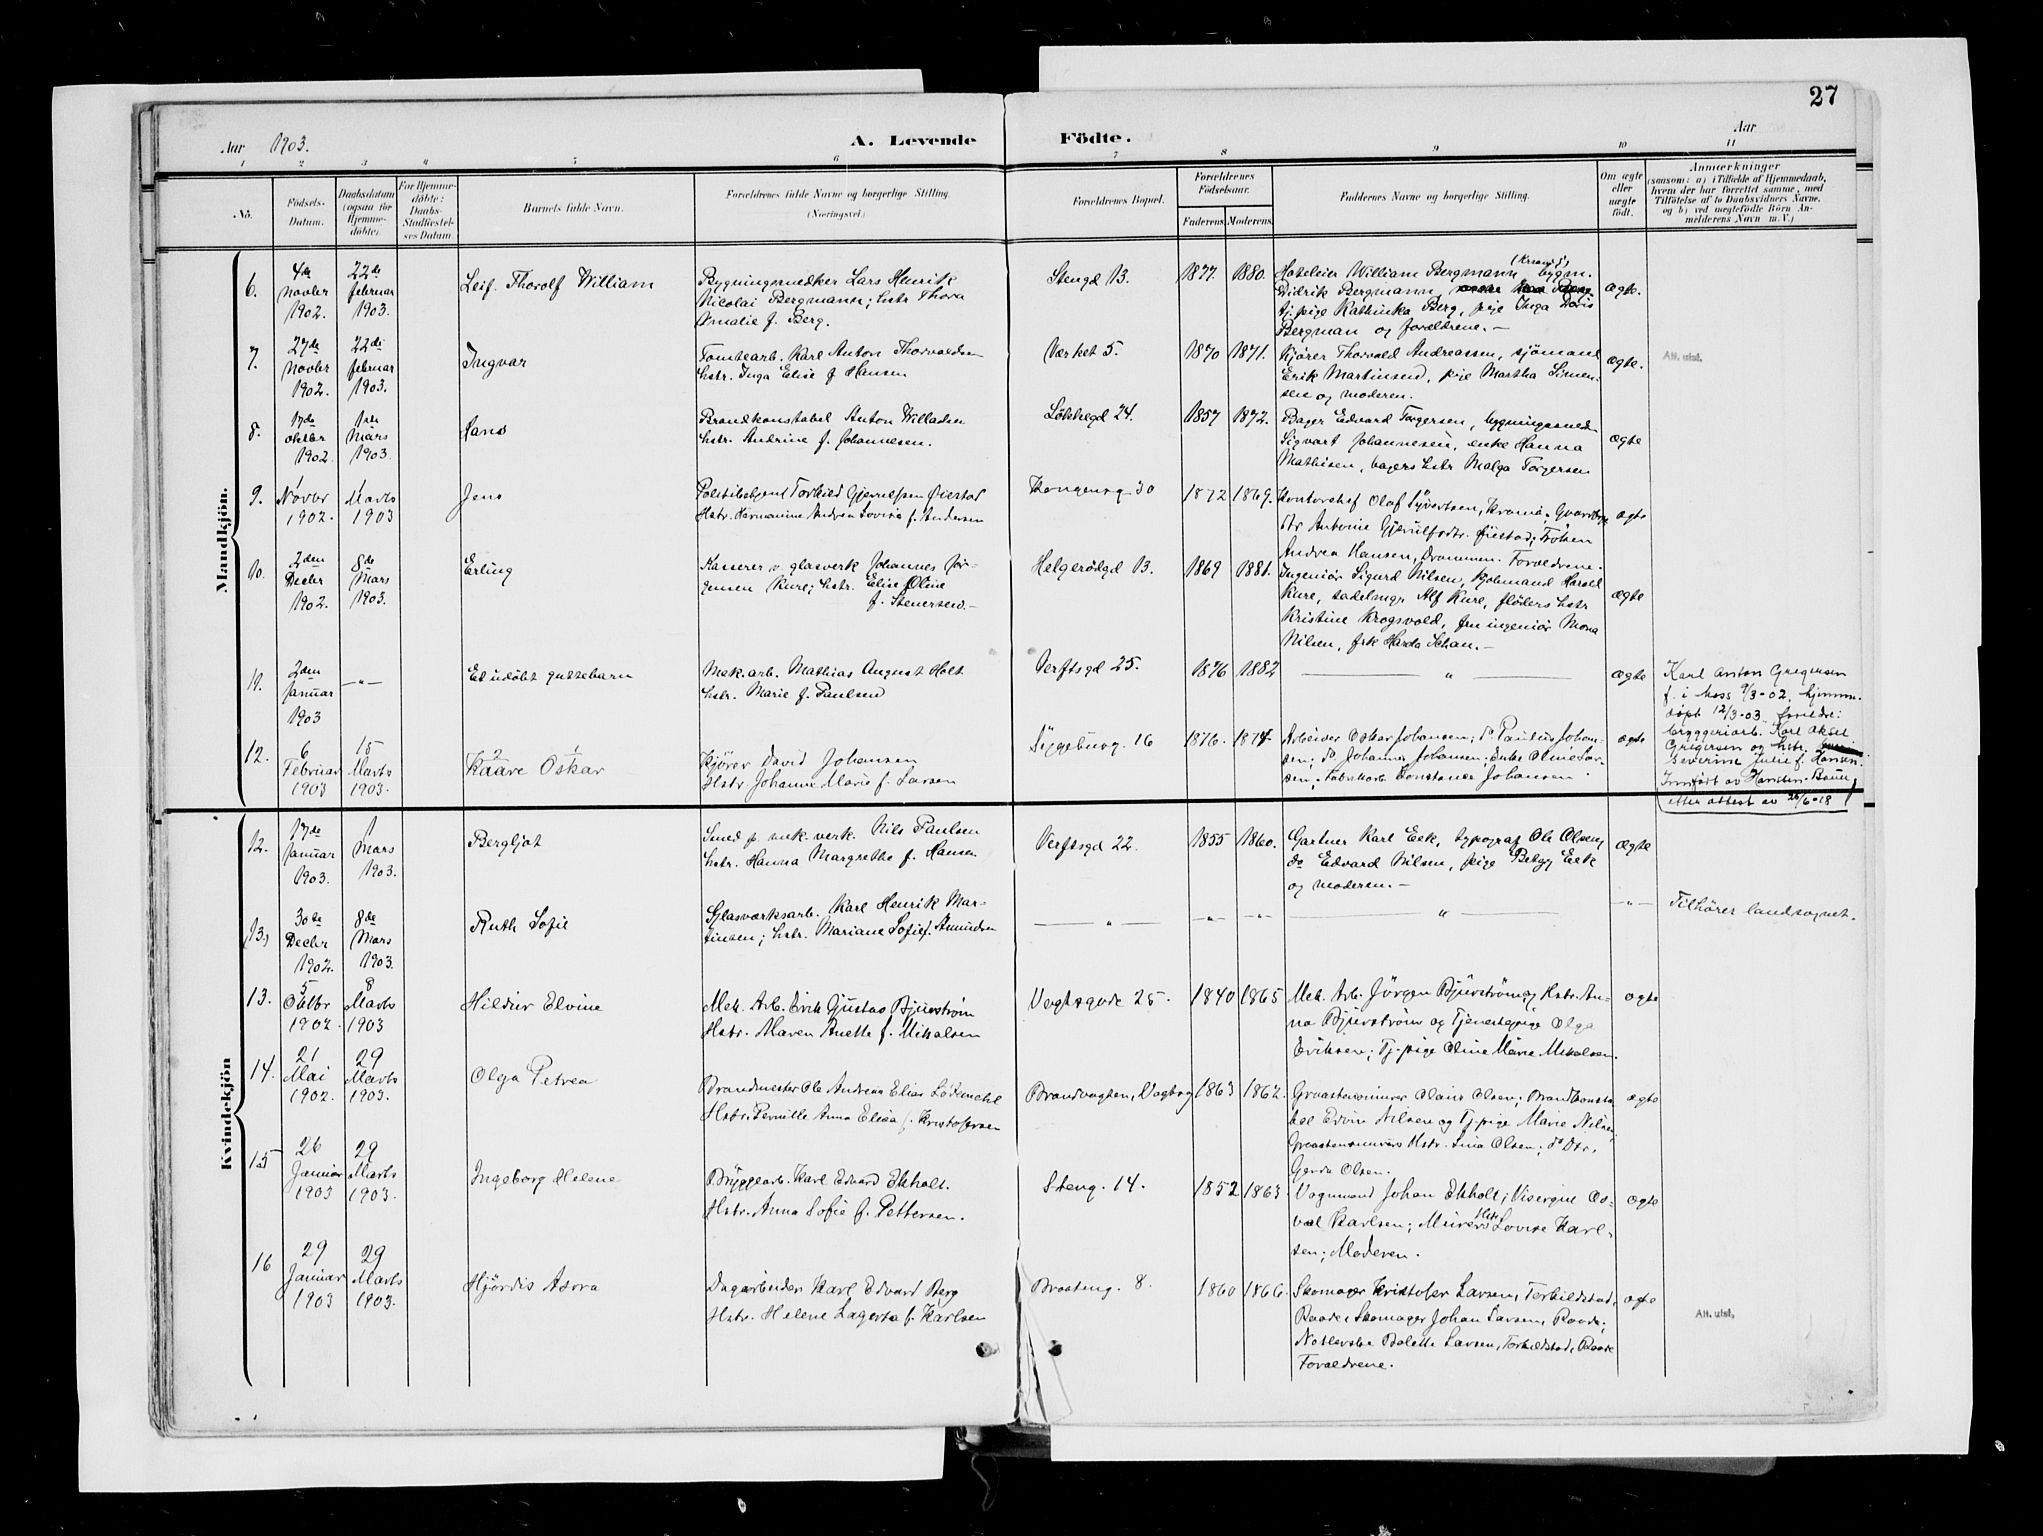 27
Aar 1903.
A. Levende Födte.
Aar
1 2 3 4 5 6 7 8 9 10 11
No.
Födsels-
Datum.
Daabsdatum
(ogsaa for
Hjemme-
döbte).
For Hjemme-
döbte:
Daabs-
Stadfæstel-
ses Datum.
Barnets fulde Navn.
Forældrenes fulde Navne og borgerlige Stilling
(Næringsvei.)
Forældrenes Bopæl.
Forældrenes
Födselsaar.
Faderens. Moderens.
Faddernes Navne og borgerlige Stilling.
Om ægte
eller
uægte
födt.
Anmærkninger
(saasom: a) i Tilfælde af Hjemmedaab,
hvem der har forrettet samme, med
Tilföielse af to Daabsvidners Navne,
og b) ved uægtefödte Börn An-
melderens Navn m. V.)
Mandkjön.
6.
4de
Novbr
1902.
22de
februar
1903.
Leif Thorolf William
Bygningssnedker Lars Henrik
Nicolai Bergmann; hstr Thora
Amalie f. Berg.
Stengd 13.
1877. 1880.
Hoteleier William Bergmann (Krania), bygm.
Didrik Bergmann,
tj.pige Kathinka Berg, pige Inga Doris
Bergman og forældrene.-
ægte.
7.
27de
Novbr
1902.
22de
februar
1903.
Ingvar
Tomtearb. Karl Anton Thorvaldsen
hstr. Inga Elise f Hansen
Værket 5.
1870 1871.
Kjörer Thorvald Andreassen, sjömand
Erik Martinsen, pige Martha Simen-
sen og moderen.
ægte.
Att. utst.
8.
17de
oktbr
1902.
1ste
Mars
1903.
Hans
Brandkonstabel Anton Willadsen
hstr. Andrine f. Johannesen.
Lökkegd 24.
1857 1872.
Bager Edvard Torgersen, bygningssnedk
Sigvart Johannesen, enke Hanna
Mathisen, bagers hstr Malga Torgersen
ægte
9.
1
Novbr
1902.
1
Marts
1903
Jens
Politibetjent Torkild Gjerulfsen Øiestad
Hstr. Hermanine Andrea Lovise f. Andersen
Kongensg 30
1872 1869.
Kontorchef Olaf Syvertsen, Krania;
Antonie Gjerulfsdtr. Øiestad; Frøken
Andrea Hansen, Drammen. Forældrene.
ægte
10.
2den
Decbr
1902.
8de
Mars
1903.
Erling
Kasserer v. glasverk Johannes Jör-
gensen Kure; hstr. Elise Oline
f. Stenersen.-
Helgerödgd 13.
1869 1881.
Ingeniör Sigurd Nilsen, Kjöbmand Harald
Kure, sadelmgr Alf Kure, fløders hstr
Kristine Krogsvold, fru ingeniör Mona
Nilsen, frk Harda Schan.-
ægte
11.
2den
Januar
1903
—"—
Et udöbt guttebarn
Mek.arb. Mathias August Holt
hstr. Marie f. Paulsen
Verftsgd 25.
1876 1882
"
ægte
Karl Anton Gregersen
f. i Moss 9/3-02, hjemme-
döpt 12/3-03. Foreldre:
bryggeriarb. Karl Aksel
Gregersen og hstr.
Severine Julie f. Hansen
Innført av
efter attest av 26/6-18
12.
6
Februar
1903
15
Marts
1903.
Kaare Oskar
Kjörer David Johansen
Hstr Johanne Marie f. Larsen
Siggeburg. 16
1876. 1874.
Arbeider Oskar Johansen; do Paulus Johan-
sen; do Johannes Johansen; Enke Oline Lar-
sen; Fabrikarb. Constance Johansen.
ægte
Kvindekjön
12.
17de
Januar
1903.
1
Mars
1903.
Bergljot
Smed p. mek. verk. Nils Paulsen
hstr. Hanna Margrethe f. Hansen
Verftsgd 22.
1855 1860.
Gartner Karl Eek, typograf Ole Olsen,
do Edvard Nilsen, pige Betzy Eek
og moderen.-
ægte
(13.)
30de
Decbr
1902.
8de
Mars
1903.
Ruth Sofie
Glasværksarb. Karl Henrik Mar-
tinsen; hstr. Mariane Sofie f. Amundsen
" —"— —"— " —"—
Tilhörer landsognet.
13.
5
Oktbr
1902.
8
Marts
1903
Hildur Elvine
Mek. Arb. Erik Gustav Bjurström
Hstr. Maren Anette f. Mikalsen
Vogtsgade 25.
1840 1865
Mek. Arb. Jörgen Bjurström og Hstr. An-
na Bjurström og Tjenestepige Olga
Eriksen; Tj.pige Oline Marie Mikalsen.
ægte
14.
21
Mai
1902.
29
Marts
1903.
Olga Petrea
Brandmester Ole Andreas Elias Lödemehl
Hstr. Pernille Anna Elisa f. Kristofersen
Brandvagten, Vogtsg
1863 1862.
Graastensmurer Olaus Olsen; Brandkonsta-
bel Edvin Nilsen og Tj.pige Marie Nilsen,
Graastensmurers Hstr. Lina Olsen; do Dtr.
Gerda Olsen.
ægte
15
26
Januar
1903
29
Marts
1903.
Ingeborg Helene
Bryggearb. Karl Edvard Ekholt.
Hstr. Anna Sofie f. Pettersen.
Steng. 14.
1852 1863.
Vognmand Johan Ekholt; Visergut Os-
val Karlsen; Murers Hstr. Lovise Karl-
sen; Moderen.
ægte
16
29
Januar
1903
29
Marts
1903.
Hjördis Asora
Dagarbeider Karl Edvard Berg
Hstr. Helene Lagerta f. Karlsen
Braateng. 8.
1860 1866.
Skomager Kristofer Larsen, Torkildstad,
Raade; Skomager Johan Larsen, Raade;
Bolette Larsen, Torkildstad, Raade
Forældrene.
ægte
Att. utst.